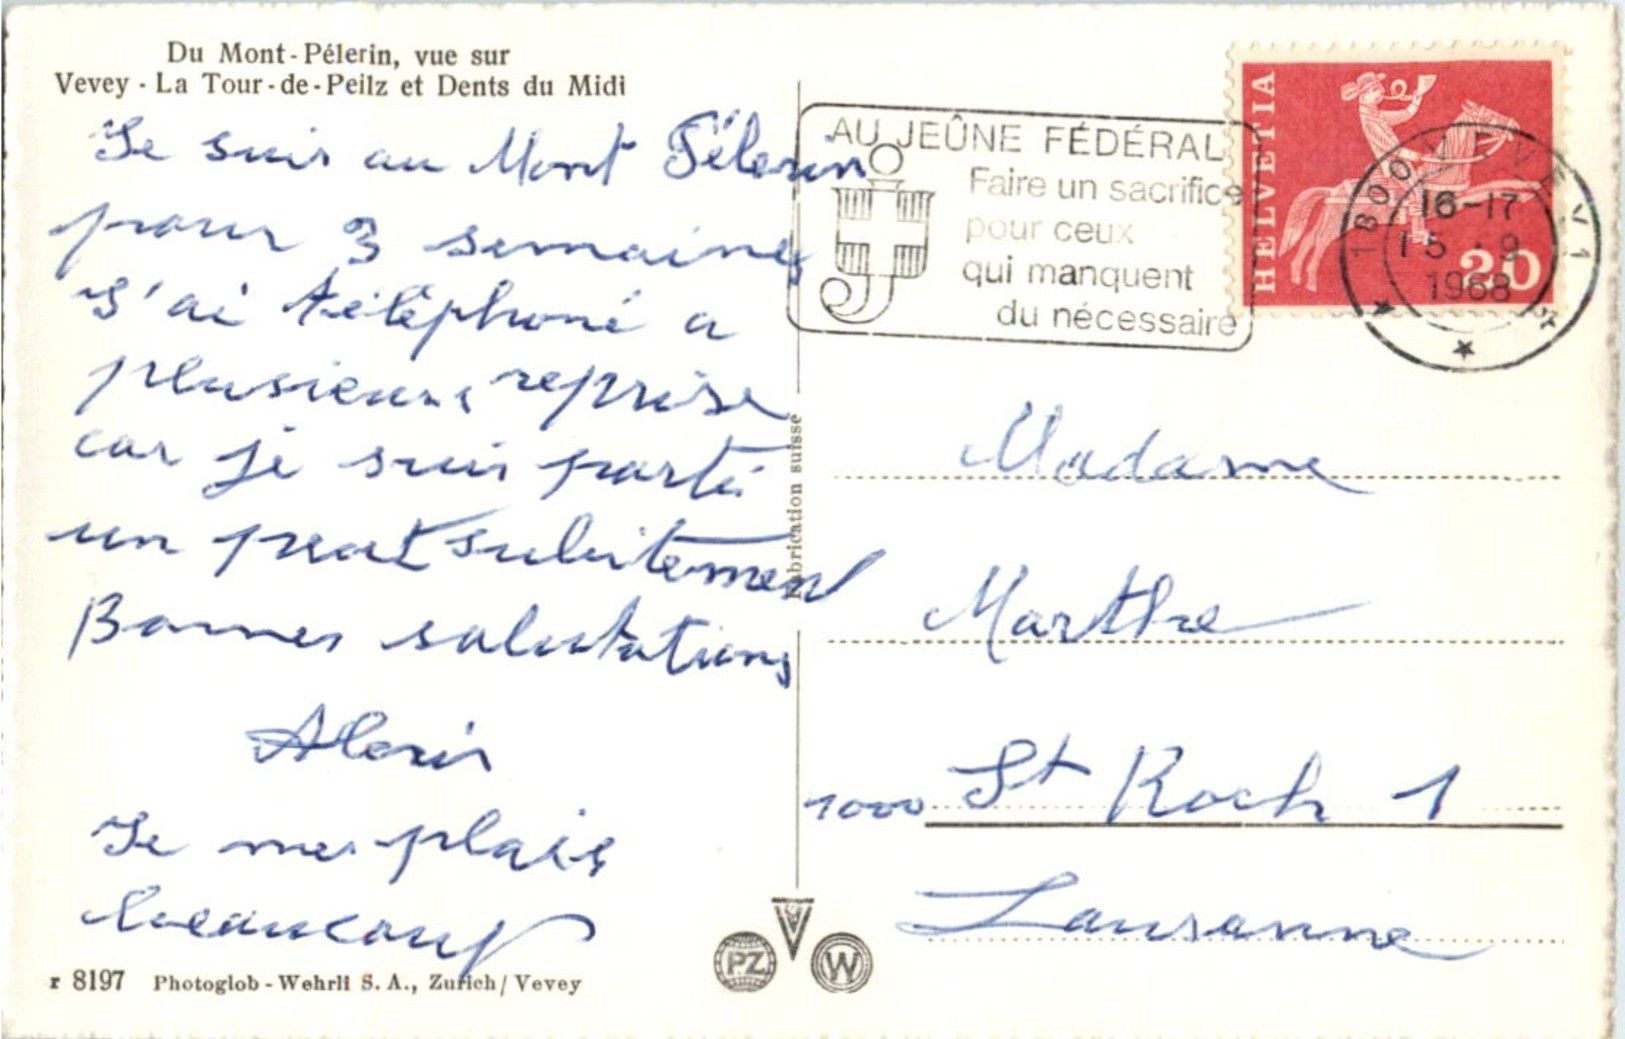 Du Mont-Pélerin, vue sur
Vevey - La Tour-de-Peilz et Dents du Midi
Je suis au Mont Pélerin
pour 3 semaines
J'ai téléphoné a
plusieurs reprise
car je suis parti
un peut subitement
Bonnes salutations
Alexis
Je me plais
beaucoup
r 8197 Photoglob-Wehrli S. A., Zurich/Vevey
Fabrication suisse
PZ
W
AU JEÛNE FÉDÉRAL
Faire un sacrifice
pour ceux
qui manquent
du nécessaire
HELVETIA
20
1800 VEVEY 1
16-17
15.9
1968
Madame
Marthe
1000 St Roch 1
Lausanne